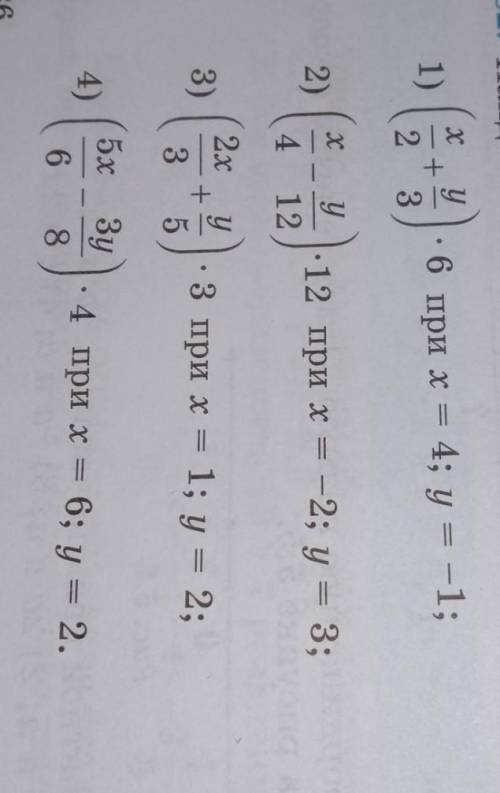 1) (x/2 + y/3) · 6 при x = 4; y = −1;
2) (x/4 − y/12) · 12 при x = −2; y = 3;
3) (2x/3 + y/5) · 3 при x = 1; y = 2;
4) (5x/6 − 3y/8) · 4 при x = 6; y = 2.